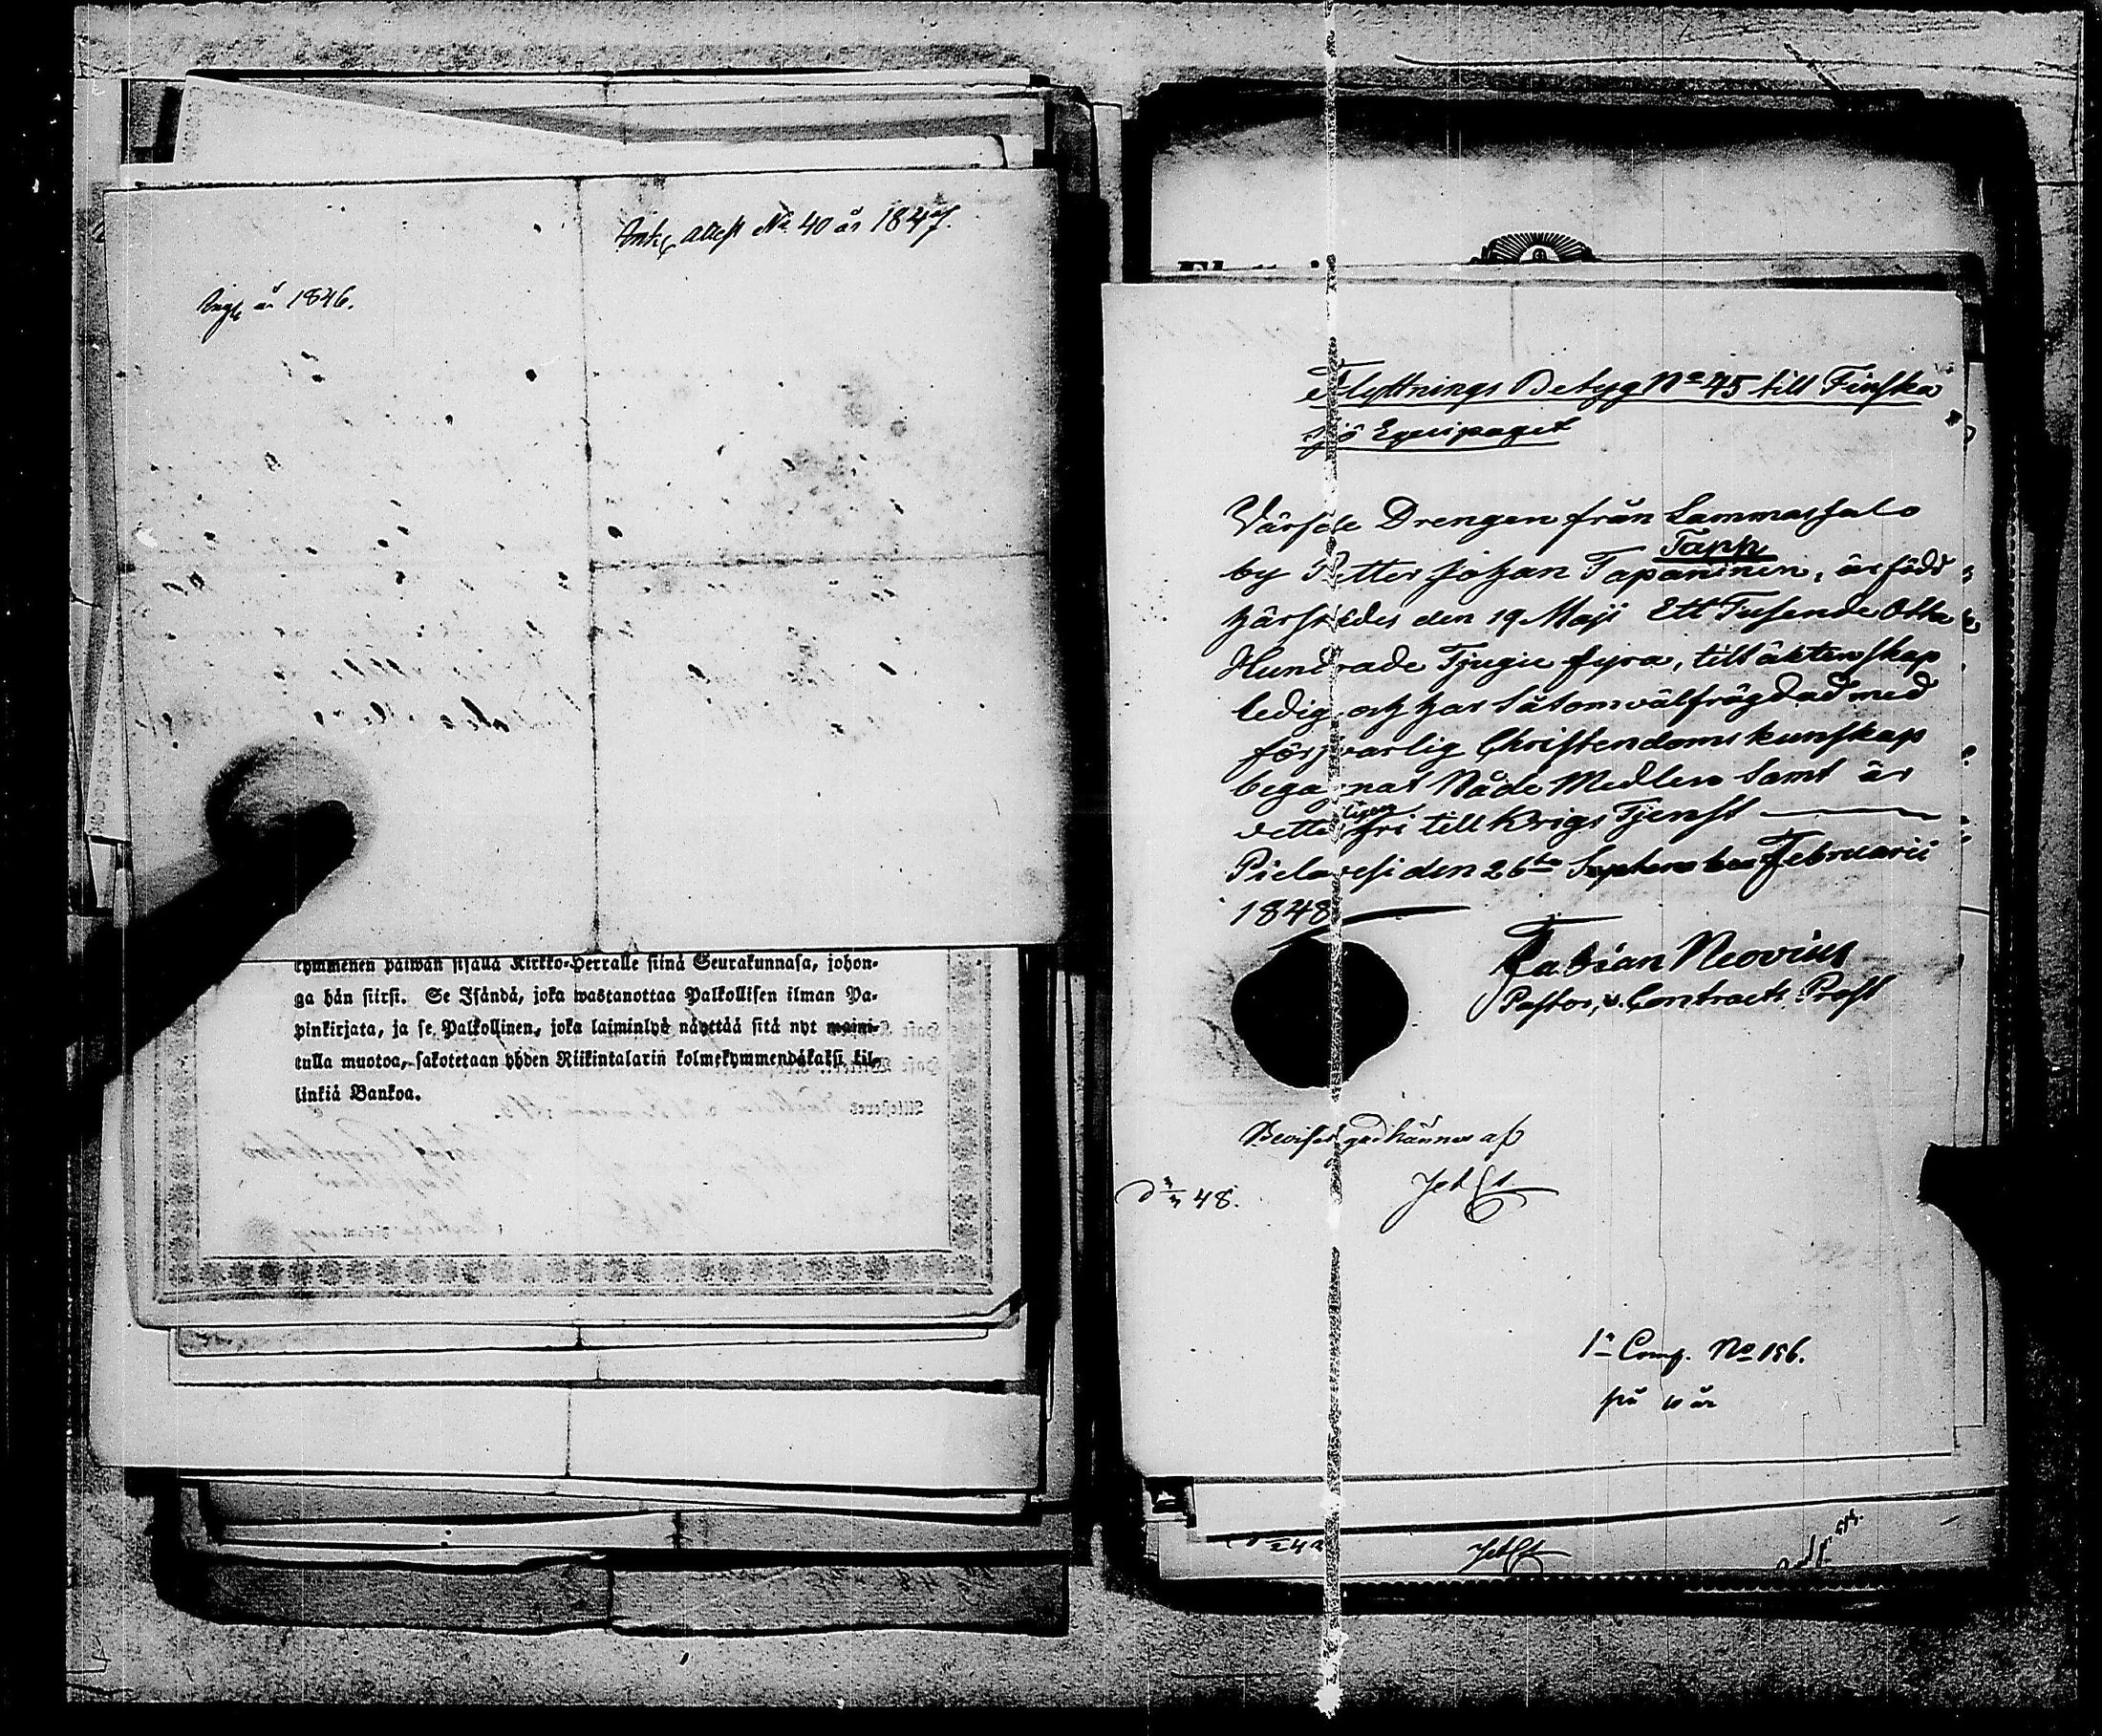 attest No 40 år 1847.
år 1846.
kymmenen päiwän sisällä Kirkko-Herralle siinä Seurakunnasa, johon-
ga hän siirsi. Se Isändä, joka wastanottaa Palkollisen ilman Pa-
pinkirjata, ja se Palkollinen, joka laiminlyö näyttää sitä nyt maini-
tulla muotoa, sakotetaan yhden Riikintalarin kolmekymmendäkaksi kil-
linkiä Bankoa.
Flyttnings Betyg No 45 till Finska
Sjö Equipaget
Värfde Drengen från Lammassalo
Tapp
by Petter Johan Tapaninen, är född
härstädes den 19 Maji Ett Tusende Otta
Hundrade Tjugie fyra, till äktenskap
ledig och har såsom välfrägdad med
försvarlig Christendoms kunskap
begagnat Nåde Medlen samt är
ligen
vetter fri till Krigs Tjenst
Pielavesi den 26te Februarii
1848
Fabian Neovius
Pastor, v. Contracts Prost
Beviset godkännes af
48.
1a Comp. No 156.
på 10 år